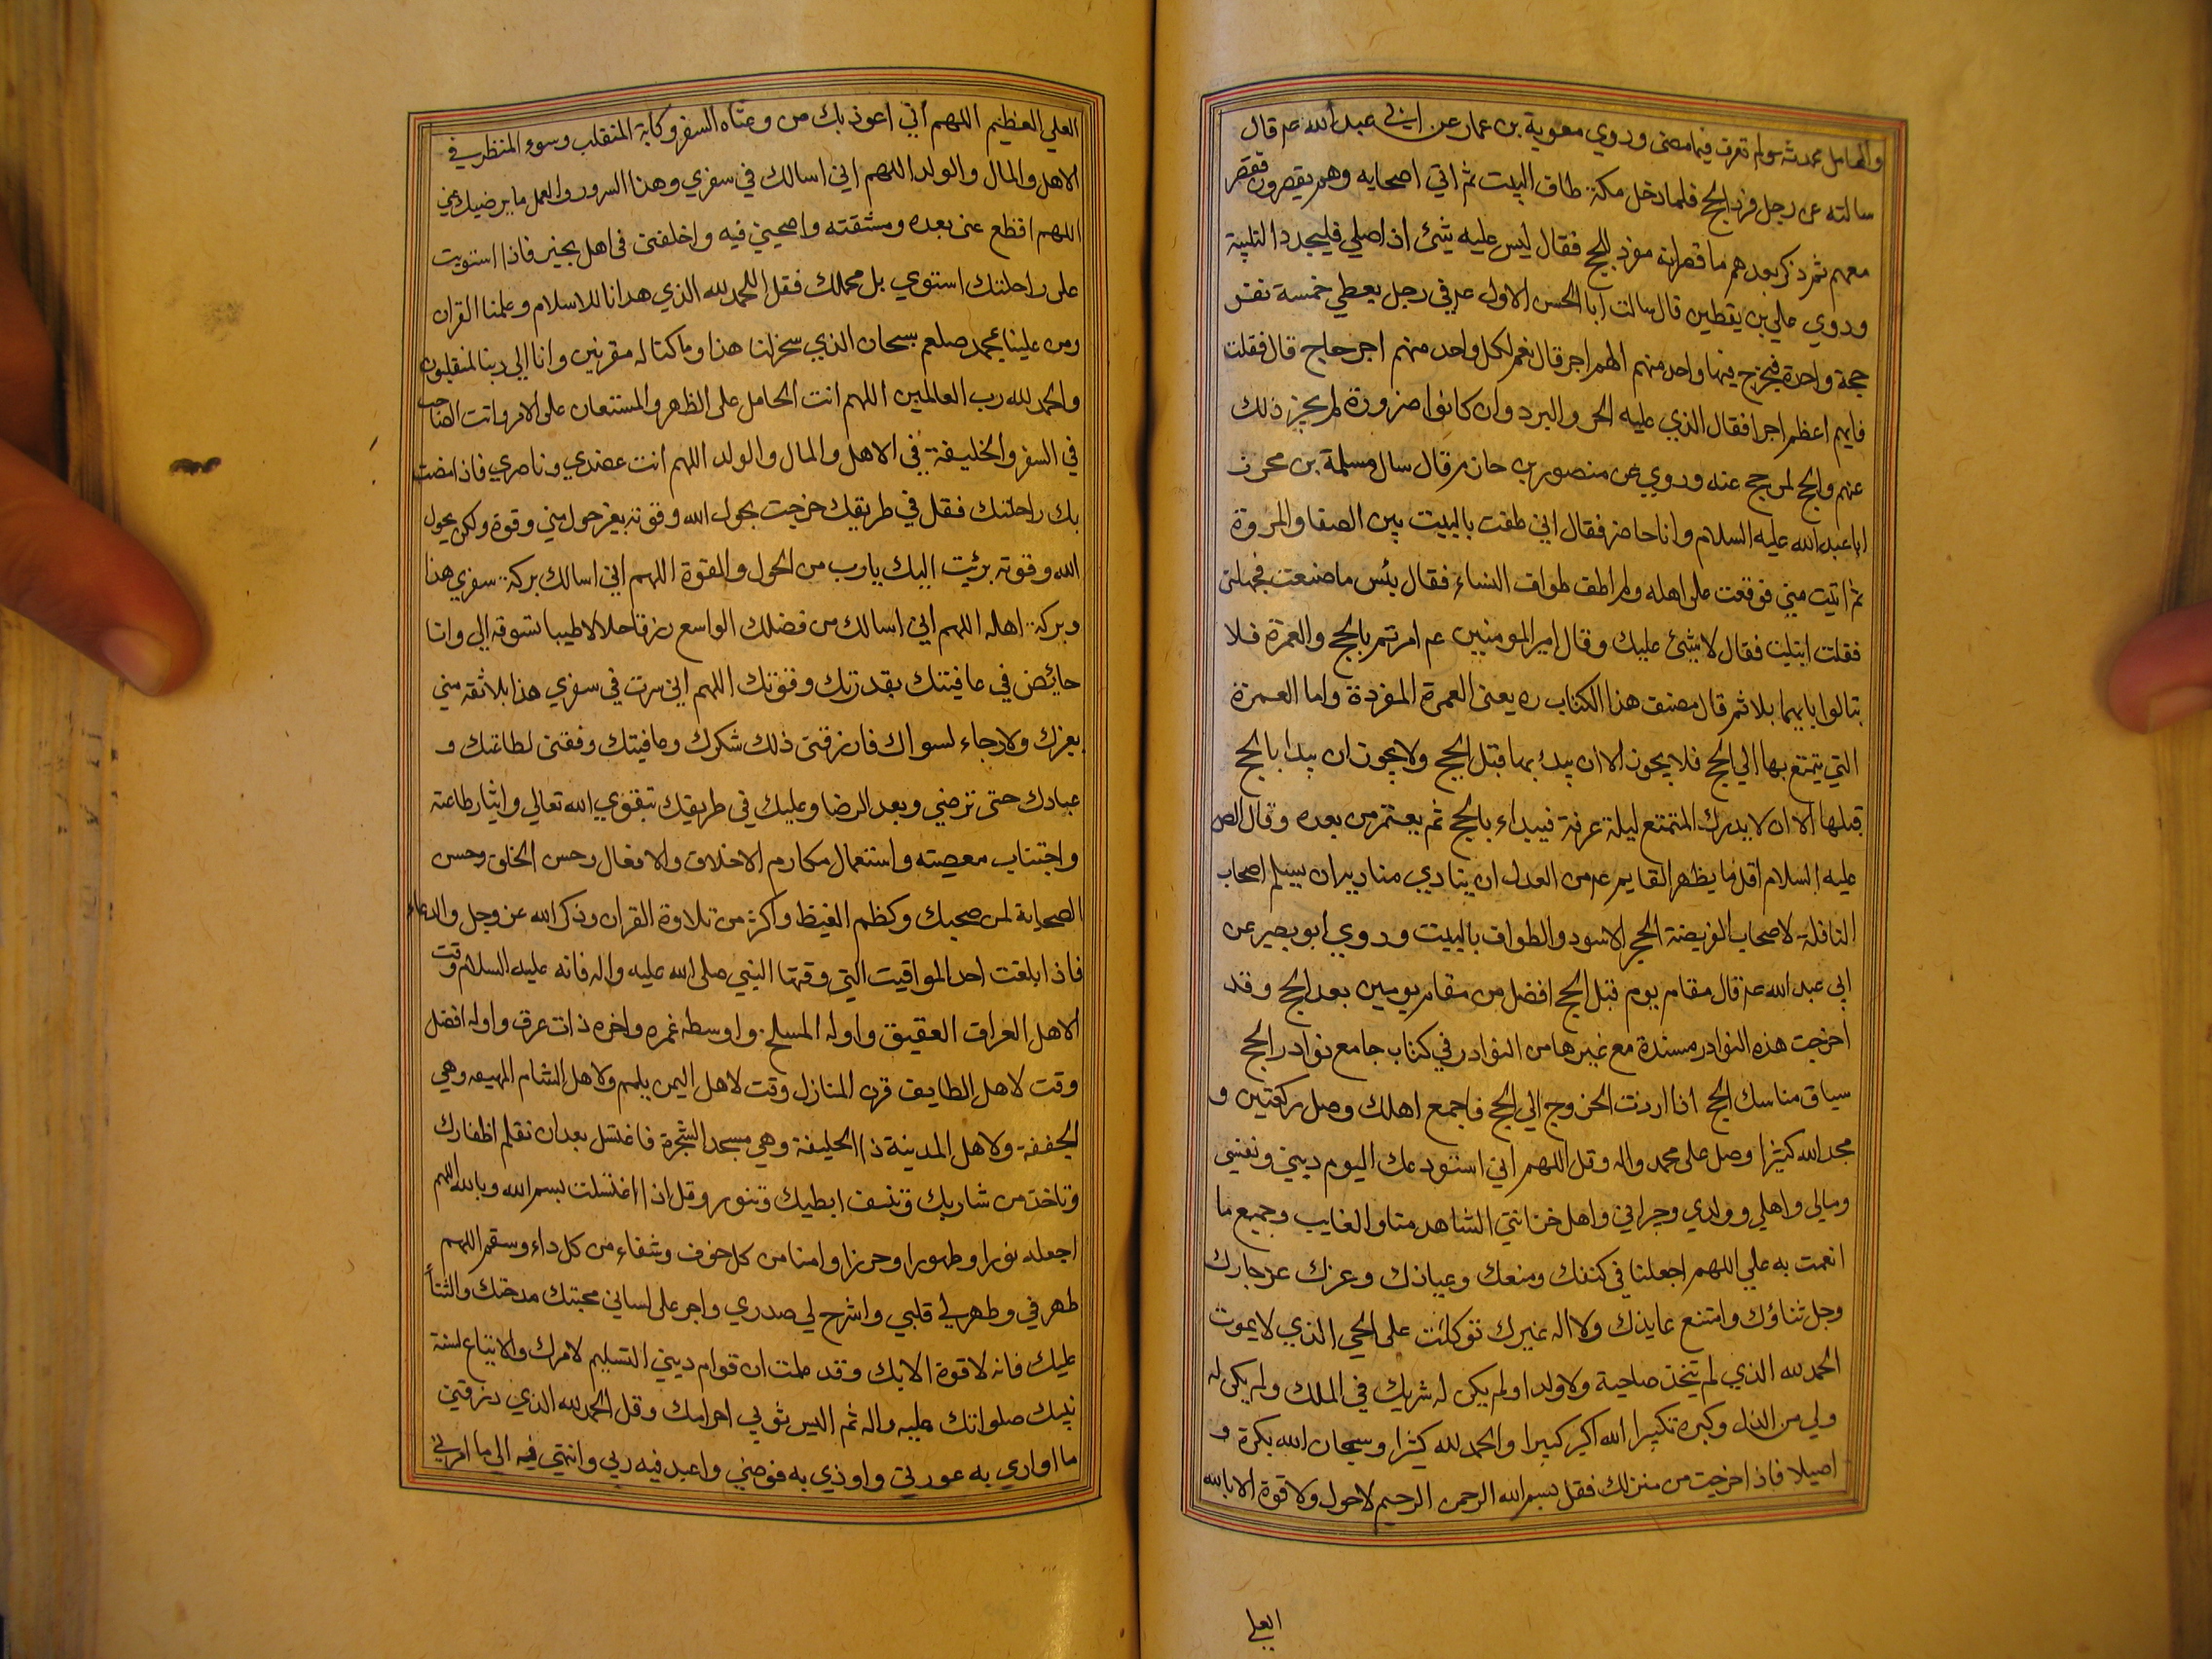 والحامل محمد ثه سولم تعرف فيما مضى وروي معوية بن عمار عن ابي عبد الله عم قال
سالته عن رجل فرد الحج فلما دخل مكة طاف البيت ثم اتي اصحابه وهم يقصرون فقصر
معهم ثم ذكر بعدهم ما قصر انه مفرد للحج فقال ليس عليه شئ اذا صلي فليجدد التلبية
وروي علي بن يقطين قال سالت ابا الحسن الاول عم في رجل يعطي خمسة نفر
حجة واحدة فيخرج فيها واحد منهم الهم اجر قال نعم لكل واحد منهم اجر حاج قال فقلت
فايهم اعظم اجرا فقال الذي عليه الحر والبرد وان كانوا صرورة لم يجز ذلك
عنهم والحج لمن حج عنه وروي عن منصور بن حازم قال سال مسلمة بن محرز
ابا عبد الله عليه السلام وانا حاضر فقال اني طفت بالبيت بين الصفا والمروة
ثم اتيت مني فوقعت على اهله ولم اطف طواف النساء فقال بئس ما صنعت فجهلني
فقلت ابتليت فقال لا شئ عليك وقال امير المومنين عم امرتم بالحج والعمرة فلا
تبالوا بايهما بلا ثم قال مصنف هذا الكتاب ره يعنى العمرة المفردة واما العمرة
التي يتمتع بها الي الحج فلا يجوز الا ان يبدء بها قبل الحج ولا يجوز ان يبدا بالحج
قبلها الا ان لا يدرك المتمتع ليلة عرفة فيبداء بالحج ثم يعتمر من بعده وقال الص
عليه السلام اقل ما يظهر القايم عم من العدل ان ينادي مناديه ان يسلم اصحاب
النافلة لاصحاب الفريضة الحجر الاسود والطواف بالبيت وروي ابو بصير عن
ابي عبد الله عم قال مقام يوم قبل الحج افضل من مقام يومين بعد الحج وقد
اخرجت هذه النوادر مسندة مع غيرها من النوادر في كتاب جامع نوادر الحج
سياق مناسك الحج اذا اردت الخروج الي الحج فاجمع اهلك وصل ركعتين و
مجد الله كثيرا وصل على محمد واله وقل اللهم اني استودعك اليوم ديني ونفسي
ومالي واهلي وولدي وجراني واهل خزانتي الشاهد منا والغايب وجميع ما
انعمت به علي اللهم اجعلنا في كنفك ومنعك وعياذك وعزك عز جارك
وجل ثناؤك وامتنع عايذك ولا اله غيرك توكلت على الحي الذي لا يموت
الحمد لله الذي لم يتخذ صاحبة ولا ولدا ولم يكن له شريك في الملك ولم يكن له
ولي من الذل وكبره تكبيرا الله اكبر كبيرا والحمد لله كثيرا وسبحان الله بكرة و
اصيلا فاذا خرجت من منزلك فقل بسم الله الرحمن الرحيم لا حول ولا قوة الا بالله
العلي
العلي العظيم اللهم اني اعوذ بك من وعثاه السفر وكابة المنقلب وسوء المنظر في
الاهل والمال والولد اللهم اني اسالك في سفري وهذا السرور والعمل ما يرضيك عني
اللهم اقطع عنى بعده ومشقته واصحبني فيه واخلفنى فى اهل بخير فاذا استويت
على راحلتك استوي بل محملك فقل الحمد لله الذي هدانا للاسلام وعلمنا القران
ومن علينا بمحمد صلعم سبحان الذي سخر لنا هذا وما كنا له مقرنين وانا الي ربنا لمنقلبون
والحمد لله رب العالمين اللهم انت الحامل على الظهر والمستعان على الامر وانت الصاحب
في السفر والخليفة في الاهل والمال والولد اللهم انت عضدي وناصري فاذا مضت
بك راحلتك فقل في طريقك خرجت بحول الله وقوته بغير حول مني وقوة ولكن بحول
الله وقوته برئيت اليك يا رب من الحول والقوة اللهم اني اسالك بركة سفري هذا
وبركة اهله اللهم اني اسالك من فضلك الواسع رزقا حلالا طيبا تسوقه الي وانا
خائض في عافيتك بقدرتك وقوتك اللهم اني سرت في سفري هذا بلا ثقه مني
بغيرك ولا رجاء لسواك فارزقنى ذلك شكرك وعافيتك وفقنى لطاعتك و
عبادك حتى ترضي وبعد الرضا وعليك في طريقك بتقوي الله تعالي وايثار طاعته
واجتناب معصيته واستعمال مكارم الاخلاق والافعال وحس الخلق وحسن
الصحابة لمن صحبك وكظم الغيظ واكثر من تلاوة القران وذكر الله عز وجل والدعاء
فاذا بلغت احد المواقيت التي وقتها النبي صلى الله عليه واله فانه عليه السلام وقت
الاهل العراق العقيق واوله المسلح واوسطه غمره واخره ذات عرق واوله افضل
وقت لاهل الطايف قرن المنازل وقت لاهل اليمن يلملم ولاهل الشام المهيعه وهي
الجحفة ولاهل المدينة ذا الحليفة وهي مسجد الشجرة فاغتسل بعد ان تقلم اظفارك
وتاخذ من شاربك وتنتف ابطيك وتنور وقل اذا اغتسلت بسم الله وبالله اللهم
اجعله نورا وطهورا وحرزا وامنا من كل خوف وشفاء من كل داء وسقم اللهم
طهرني وطهر لي قلبي واشرح لي صدري واجر على لساني محبتك مدحتك والثنا
عليك فانه لا قوة الا بك وقد علمت ان قوام ديني التسليم لامرك والاتباع لسنة
نبيك صلواتك عليه واله ثم البس ثوبي احرامك وقل الحمد لله الذي رزقني
ما اواري به عورتي واوذي به فوضي واعبد فيه ربي وانتهي فيه الي ما امرني